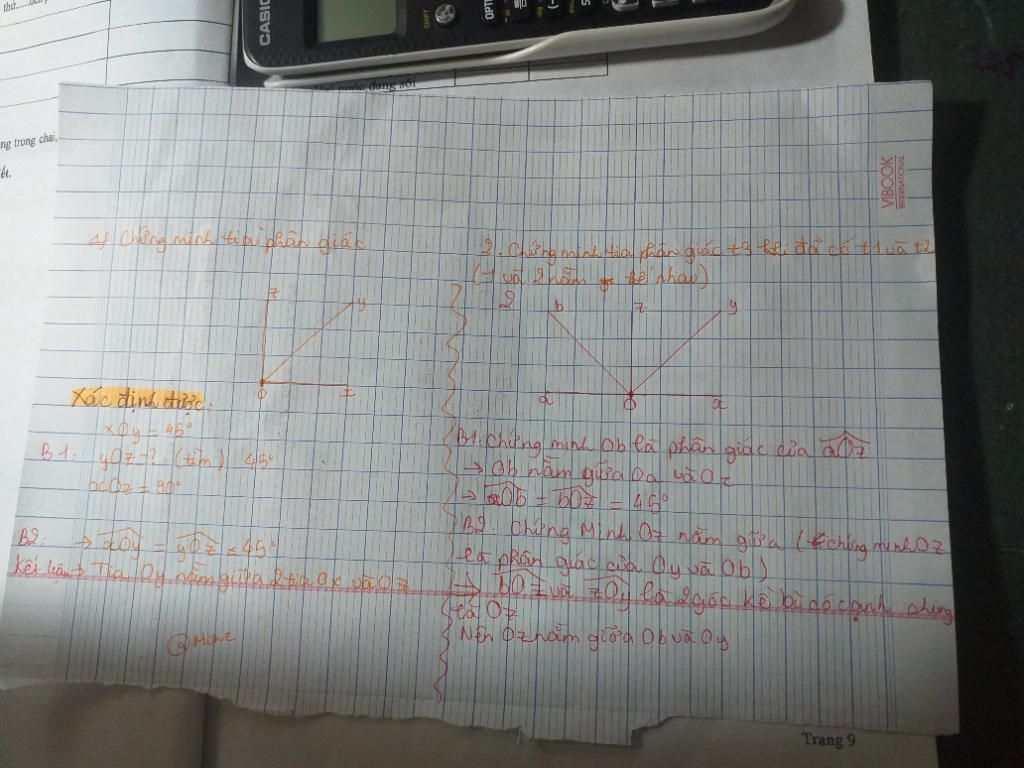 thứ......
CASIO
SHIFT
OPTN
ng trong chai,
ết.
VIBOOK
INTERNATIONAL
1) Chứng minh tia phân giác
z
y
O
x
Xác định được:
xOy = 45°
B1: yOz = ? (tìm) 45°
xOz = 90°
B2: → xOy = yOz = 45°
Kết luận → Tia Oy nằm giữa 2 tia Ox và Oz
@Mune
2. Chứng minh tia phân giác t3 khi đã có t1 và t2
(1 và 2 nằm kế nhau)
2
b
z
y
a
O
x
B1. Chứng minh Ob là phân giác của aOz
→ Ob nằm giữa Oa và Oz
→ aOb = bOz = 45°
B2. Chứng Minh Oz nằm giữa (chứng minh Oz
là phân giác của Oy và Ob)
→ bOz và zOy là 2 góc kề bù có cạnh chung
là Oz
Nên Oz nằm giữa Ob và Oy
Trang 9